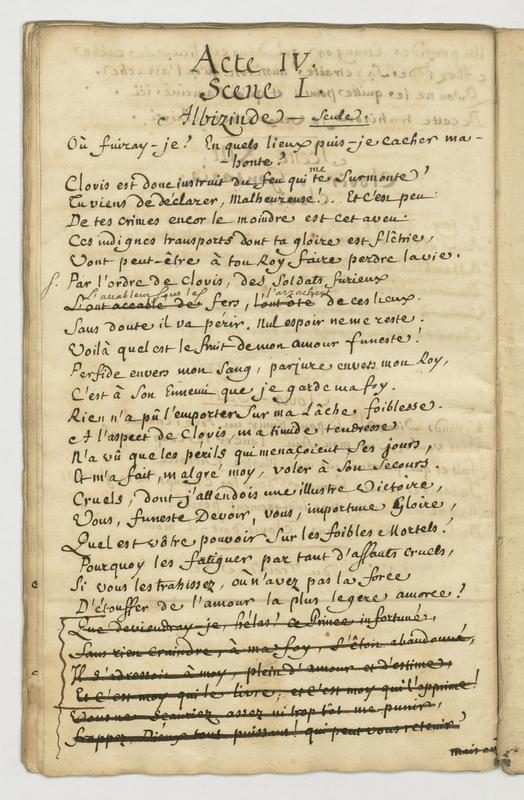 Acte IV.
Scene I.
Albizinde – Seule.
Où fuiray-je? En quels lieux puis-je cacher ma-
-honte?
Clovis est donc instruit du feu qui me Surmonte?
Tu viens de déclarer, Malheureuse!.. Et c'est peu.
De tes crimes encor le moindre est cet aveu.
Ces indignes transports dont ta gloire est flêtrie,
Vont peut-être à ton Roy faire perdre la vie.
Par l'ordre de Clovis, des Soldats furieux
L'accablent sous les l'arrachent
L'ont accablé de fers, l'ont ôté de ces lieux.
Sans doute il va périr. Nul espoir ne me reste.
Voilà quel est le fruit de mon amour funeste!
Perfide envers mon Sang, parjure envers mon Roy,
C'est à Son Ennemi que je garde ma foy.
Rien n'a pû l'emporter Sur ma Lâche foiblesse.
A l'aspect de Clovis, ma timide tendresse
N'a vû que les périls qui menaçoient Ses jours,
Et m'a fait, malgré moy, voler à Son Secours.
Cruels, dont j'attendois une illustre Victoire,
Vous, funeste Devoir, vous, importune Gloire,
Quel est vôtre pouvoir Sur les foibles Mortels?
Pourquoy les fatiguer par tant d'assauts cruels,
Si vous les trahissez, ou n'avez pas la force
D'étouffer de l'amour la plus legere amorce?
Que deviendray-je, hélas! ce Prince infortuné,
Sans rien craindre, à ma foy, S'étoit abandonné,
Il S'adressoit à moy, plein d'amour et d'estime,
Et c'est moy qui le livre, et c'est moy qui l'opprime!
Vous ne Sçauriez assez ni trop tôt me punir,
Frappez, Dieux tout puissans! qui peut vous retenir?
mais